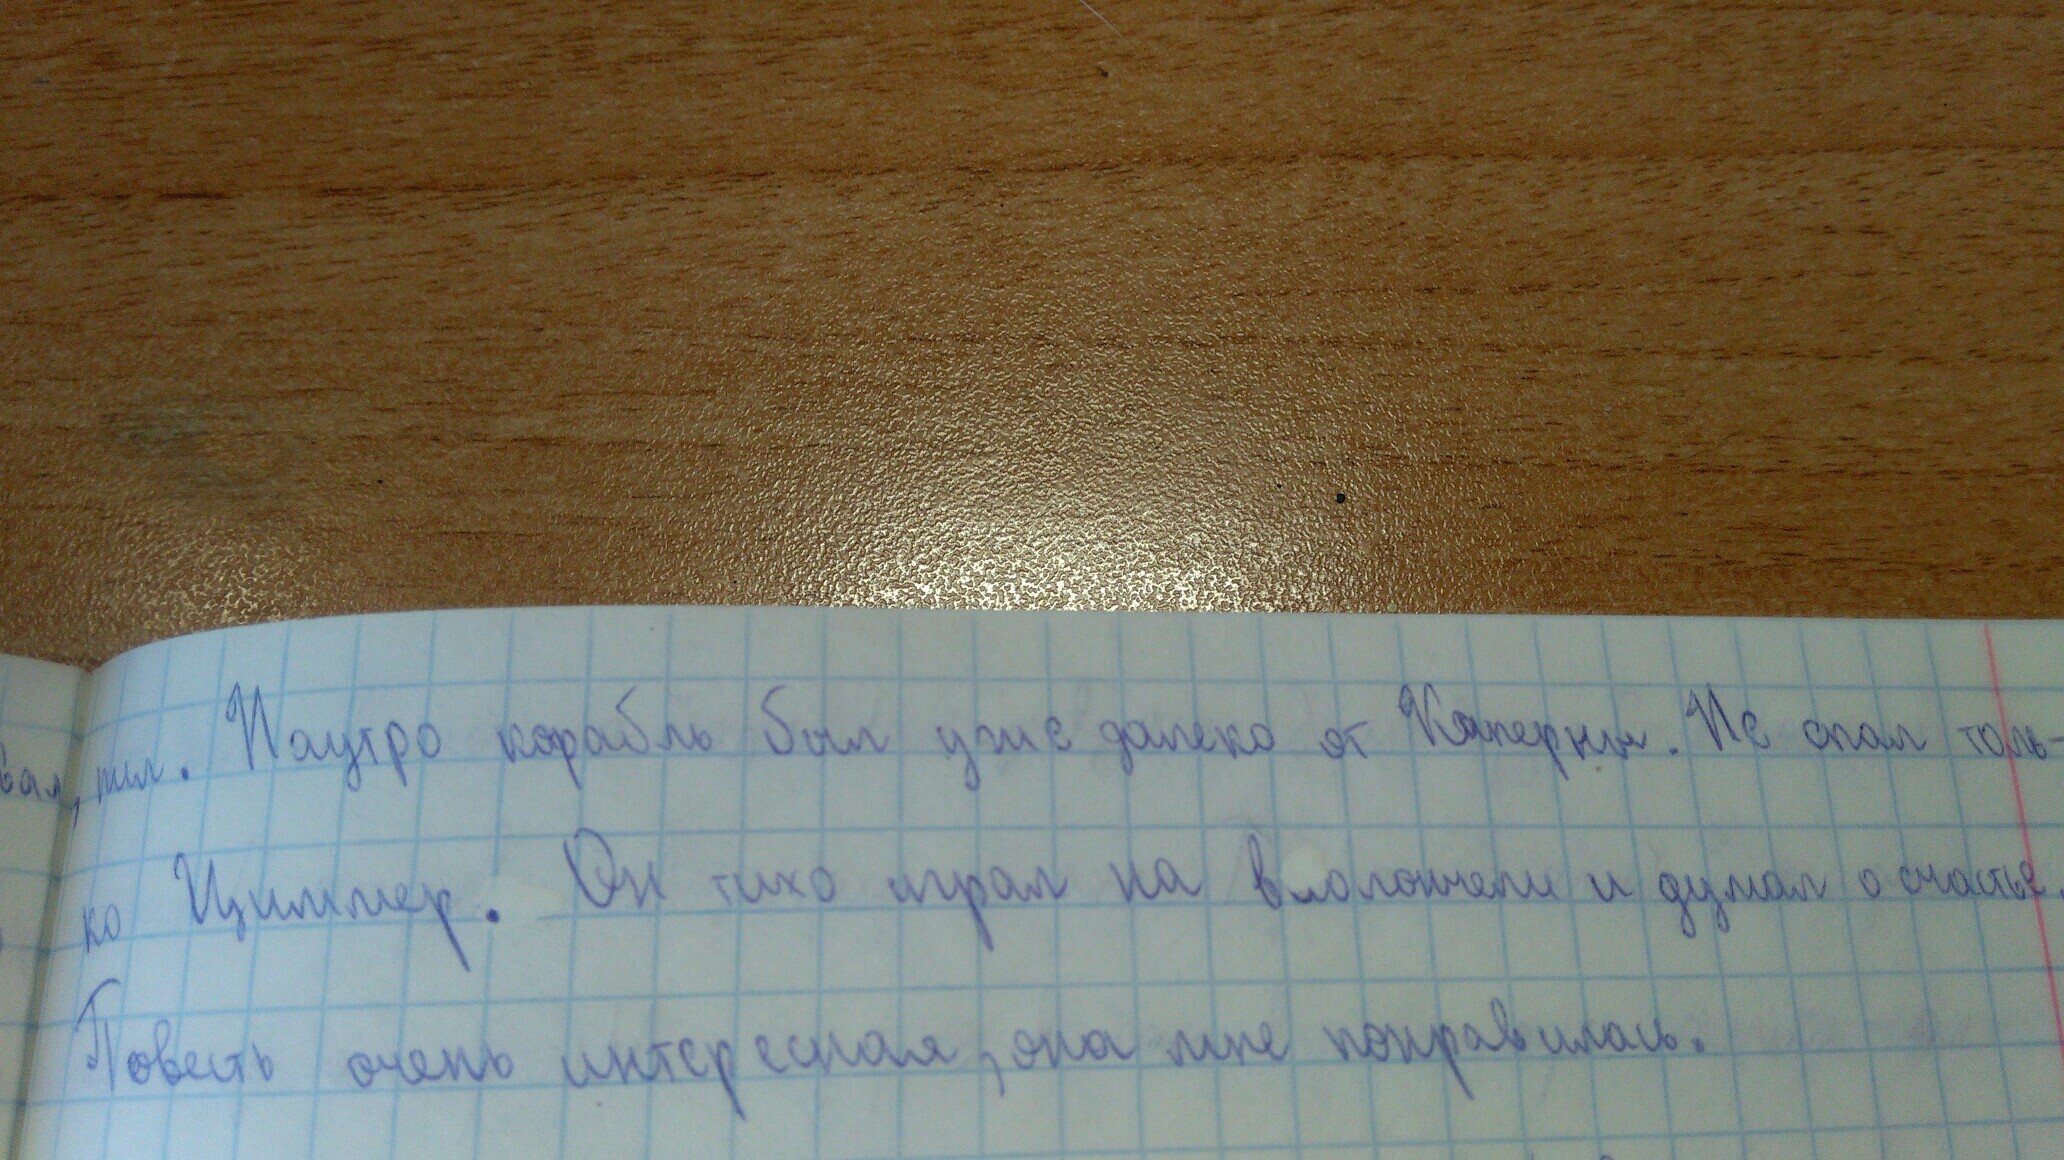 тил. Наутро корабль был уже далеко от Каперны. Не спал толь-
ко Циммер. Он тихо играл на виолончели и думал о счастье.
Повесть очень интересная, она мне понравилась.